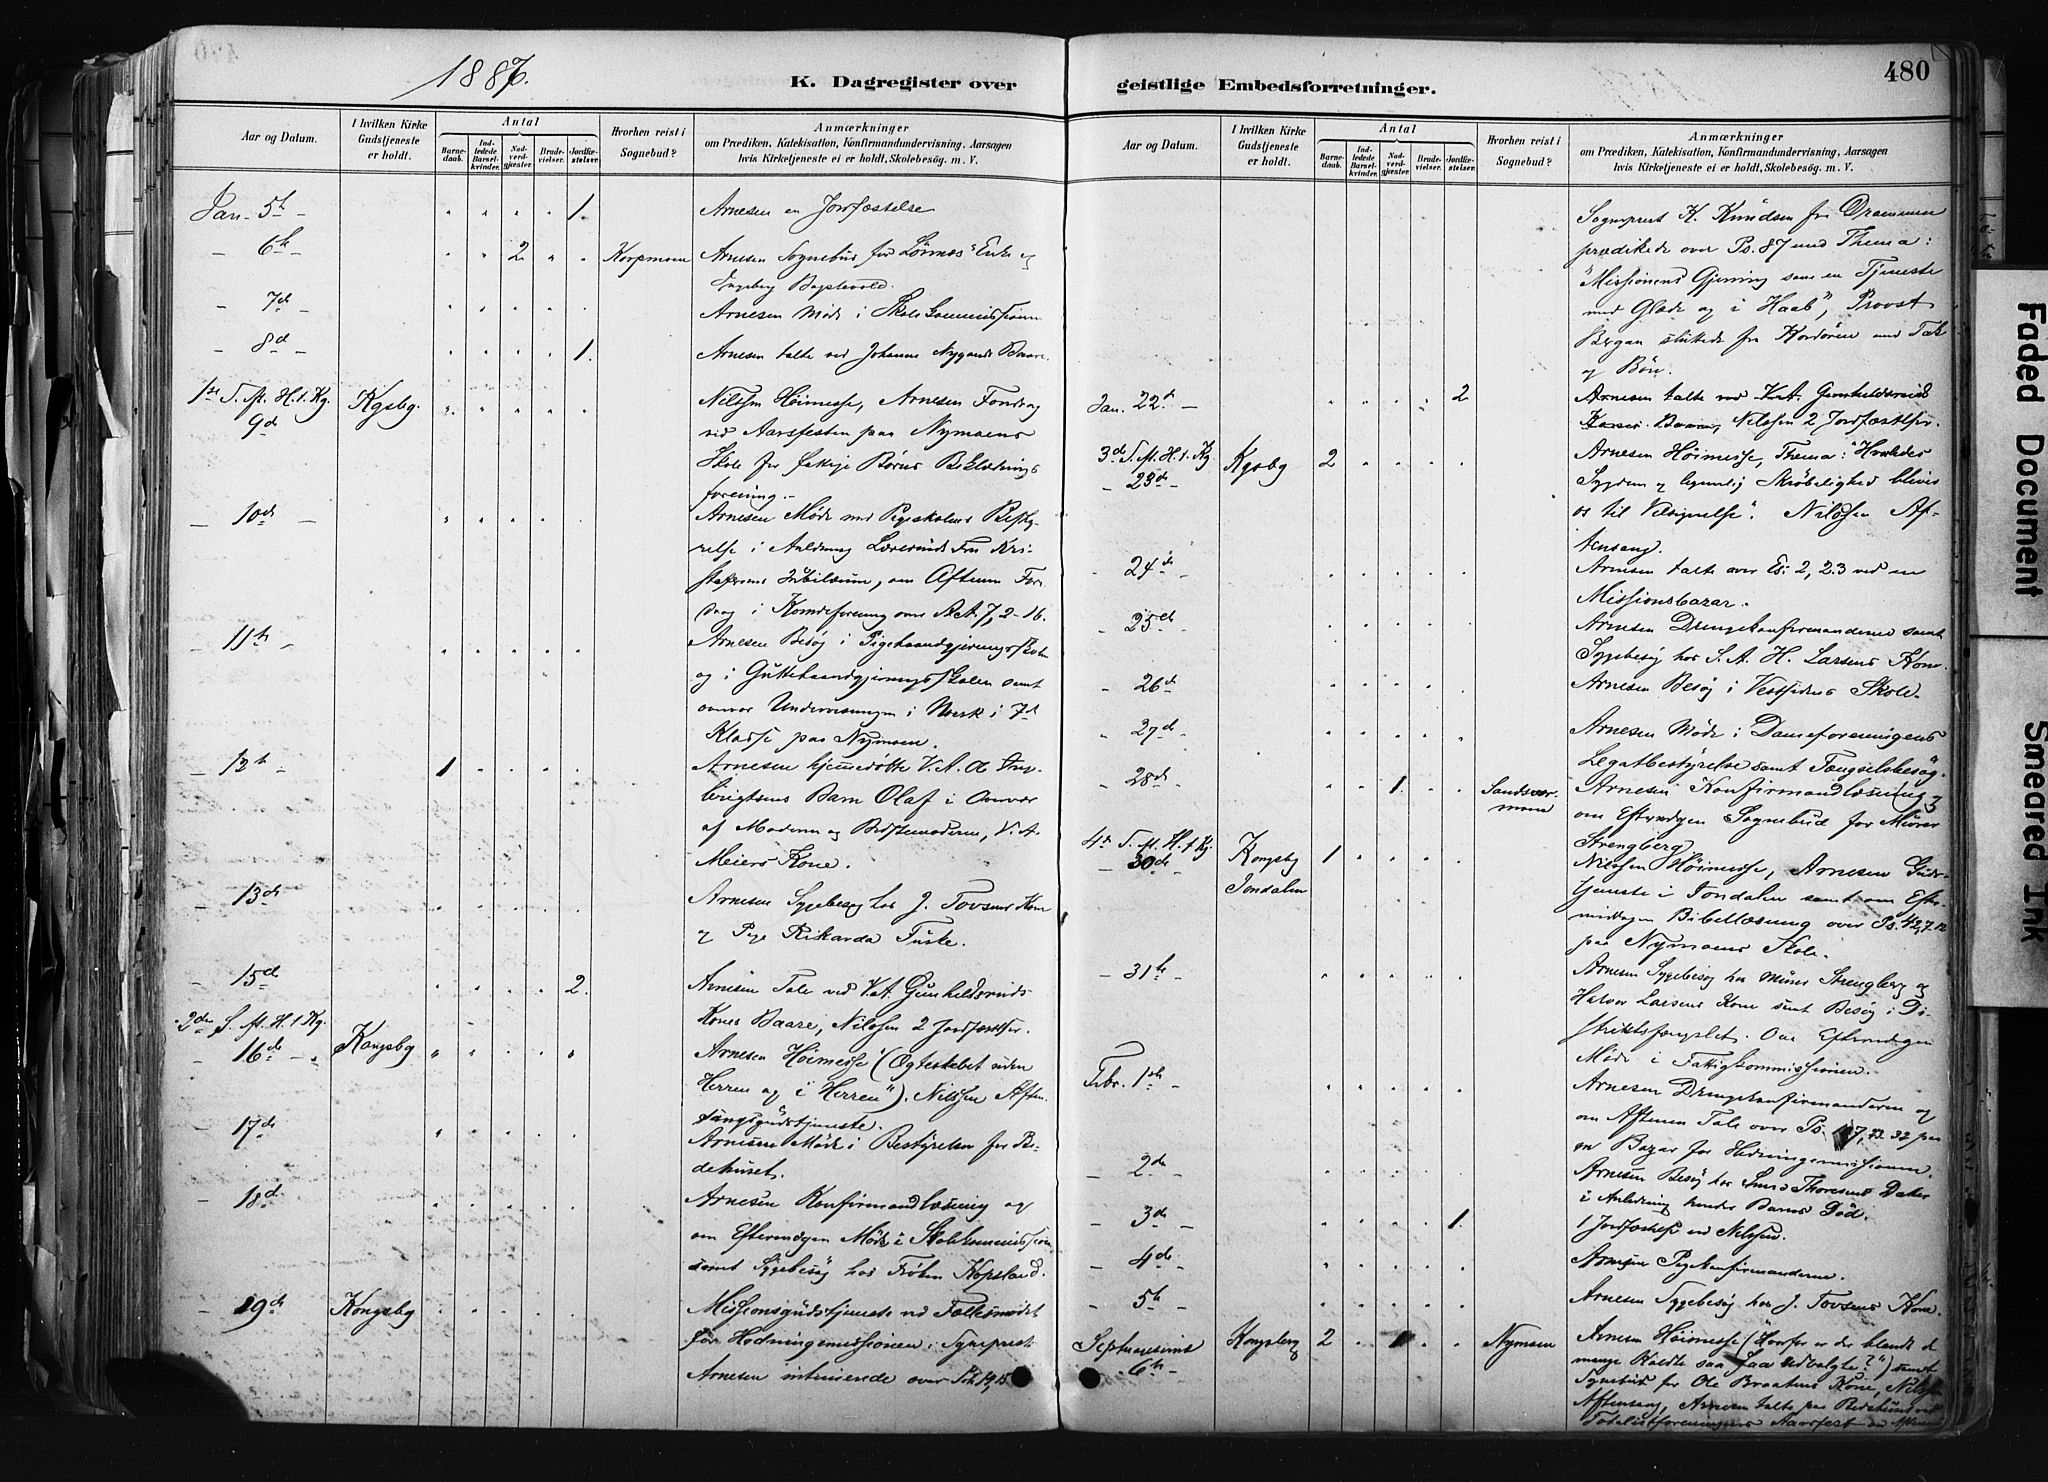 1887.
K. Dagregister over
Aar og Datum.
I hvilken Kirke Gudstjeneste er holdt.
Antal
Barnedaab.
Indledede Barselkvinder.
Nadverdgjester.
Brudevielser.
Jordfæstelser.
Hvorhen reist i Sognebud?
Anmærkninger
om Prædiken, Katekisation, Konfirmandundervisning. Aarsagen
hvis Kirketjeneste ei er holdt, Skolebesög. m. V.
Jan. 5h 1. Arnesen en Jordfæstelse
- 6h 2 Korpmoen Arnesen Sognebud for Enke og
Ingeberg
- 7d Arnesen Møde i Skolekommissionen
- 8d 1. Arnesen talte ved Johanne Nygaards Baare.
1ste S. f. H. 3 Kg. Kgsbg. Nilssen Høimesse, Arnesen Foredrag
9d ved Aarsfesten paa Nymoens
Skole for fattige Børns Beklædnings
forening.-
- 10d - Arnesen Møde med Pigeskolens Besty-
relse i Anledning Lærerinde Frk Kri-
stofersens Jubilæum, om Aftenen Fore-
drag i Kvindeforening over Act. 7, 2-16.
- 11h Arnesen Besøg i Pigehaandgjerningsskolen
og i Guttehaandgjerningsskolen samt
over Undervisningen i Norsk i 7d
Klasse paa Nymoen.
- 12h - 1 Arnesen hjemmedøbte
Barn Olaf i Overvær
af Moderen og Bedstemoderen, V. A.
Meiers Kone.
- 13de Arnesen Sygebesøg hos J. Tovsens Kone
og Pige Rikarda Fuske.
- 15d 2. Arnesen Tale ved Kat. Gunhildsruds
Kones Baare, Nilssen 2 Jordfæstelser.
2den S. f. H. 3 Kg. Kongsbg
- 16de Arnesen Høimesse (Ægteskabet uden
Herren og "i Herren"). Nilssen Aften-
sangsgudstjeneste.
- 17de Arnesen Møde i Bestyrelsen for Be-
dehuset.
- 18d Arnesen Konfirmandlæsning og
om Eftermidgen Møde i Skolekommissionen
samt Sygebesøg hos Frøken Kopsland.
- 19de Kongsbg Missionsgudstjeneste ved Fællesmødet
for Hedningemissionen: Sogneprest
Arnesen intimerede over
geistlige Embedsforretninger.
480
Aar og Datum.
I hvilken Kirke Gudstjeneste er holdt.
Antal
Barnedaab.
Indledede Barselkvinder.
Nadverdgjester.
Brudevielser.
Jordfæstelser.
Hvorhen reist i Sognebud?
Anmærkninger
om Prædiken, Katekisation, Konfirmandundervisning, Aarsagen
hvis Kirketjeneste ei er holdt, Skolebesög. m. V.
Sogneprest K. Knudsen fra Drammen
prædikede over Ps. 87 med Thema:
"Missionens Gjerning som en Tjeneste
med Glæde og i Haab", Provst
Bergan sluttede fra Kordøren med Tak
og Bøn.
Jan. 22d - 2 Arnesen talte ved Kat. Gunhildsruds
Kones Baare, Nilssen 2 Jordfæstelser.
3de S. f. H. 3 Kg. Kgsbg 2 Arnesen Høimesse, Thema: "Hvorledes
- 23de - Sygdom og legemlig Skrøbelighed blives
os til Velsignelse". Nilssen Af-
tensang.
- 24de - Arnesen talte over Es: 2, 2.3 ved en
Missionsbazar.
- 25de Arnesen Drengekonfirmanderne samt
Sygebesøg hos S. A. H. Larsens Kone.
- 26de - Arnesen Besøg i Vestsidens Skole.
- 27de Arnesen Møde i Dameforeningens
Legatbestyrelse samt Fængselsbesøg.
- 28de 1. Sandsvær-
moen Arnesen Konfirmandlæsning og
om Eftermidgen Sognebud for Murer
Strengberg.
4de S. f. H. 3 Kg. Kongsbg 1 Nilssen Høimesse, Arnesen Guds-
- 30de - Jondalen tjeneste i Jondalen samt om Efter-
middagen Bibellæsning over Ps. 42,7.12
paa Nymoens Skole.
- 31te - Arnesen Sygebesøg hos Murer Strengberg og
Halvor Larsens Kone samt Besøg i Di-
striktsfængslet. Om Eftermidgen
Møde i Fattigkommissionen.
Febr. 1ste - Arnesen Drengekonfirmanderne og
om Aftenen Tale over Ps. 32 paa
en Bazar for Hedningemissionen.
- 2de - Arnesen Besøg hos Thoresens Datter
i Anledning hendes Barns Død.
- 3de - 1. 1 Jordfæstelse ved Nilssen.
- 4de - Arnesen Pigekonfirmanderne.
- 5h - Arnesen Sygebesøg hos J. Tovsens Kone.
Septuagesima Kongsberg 2 1 Nymoen Arnesen Høimesse ("Hvorfor er der blandt de
6h - mange Kaldte saa faa udvalgte?") samt
Sognebud for Ole Braatens Kone, Nilssen
Aftensang, Arnesen talte paa Bedehuset ved
Totalistforeningens Aarsfest om Aftenen
Faded Document
Smeared Ink